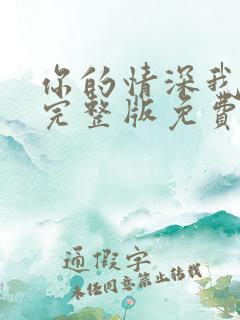 你的情深我
完整版免费
通假字
未经同意禁止转载